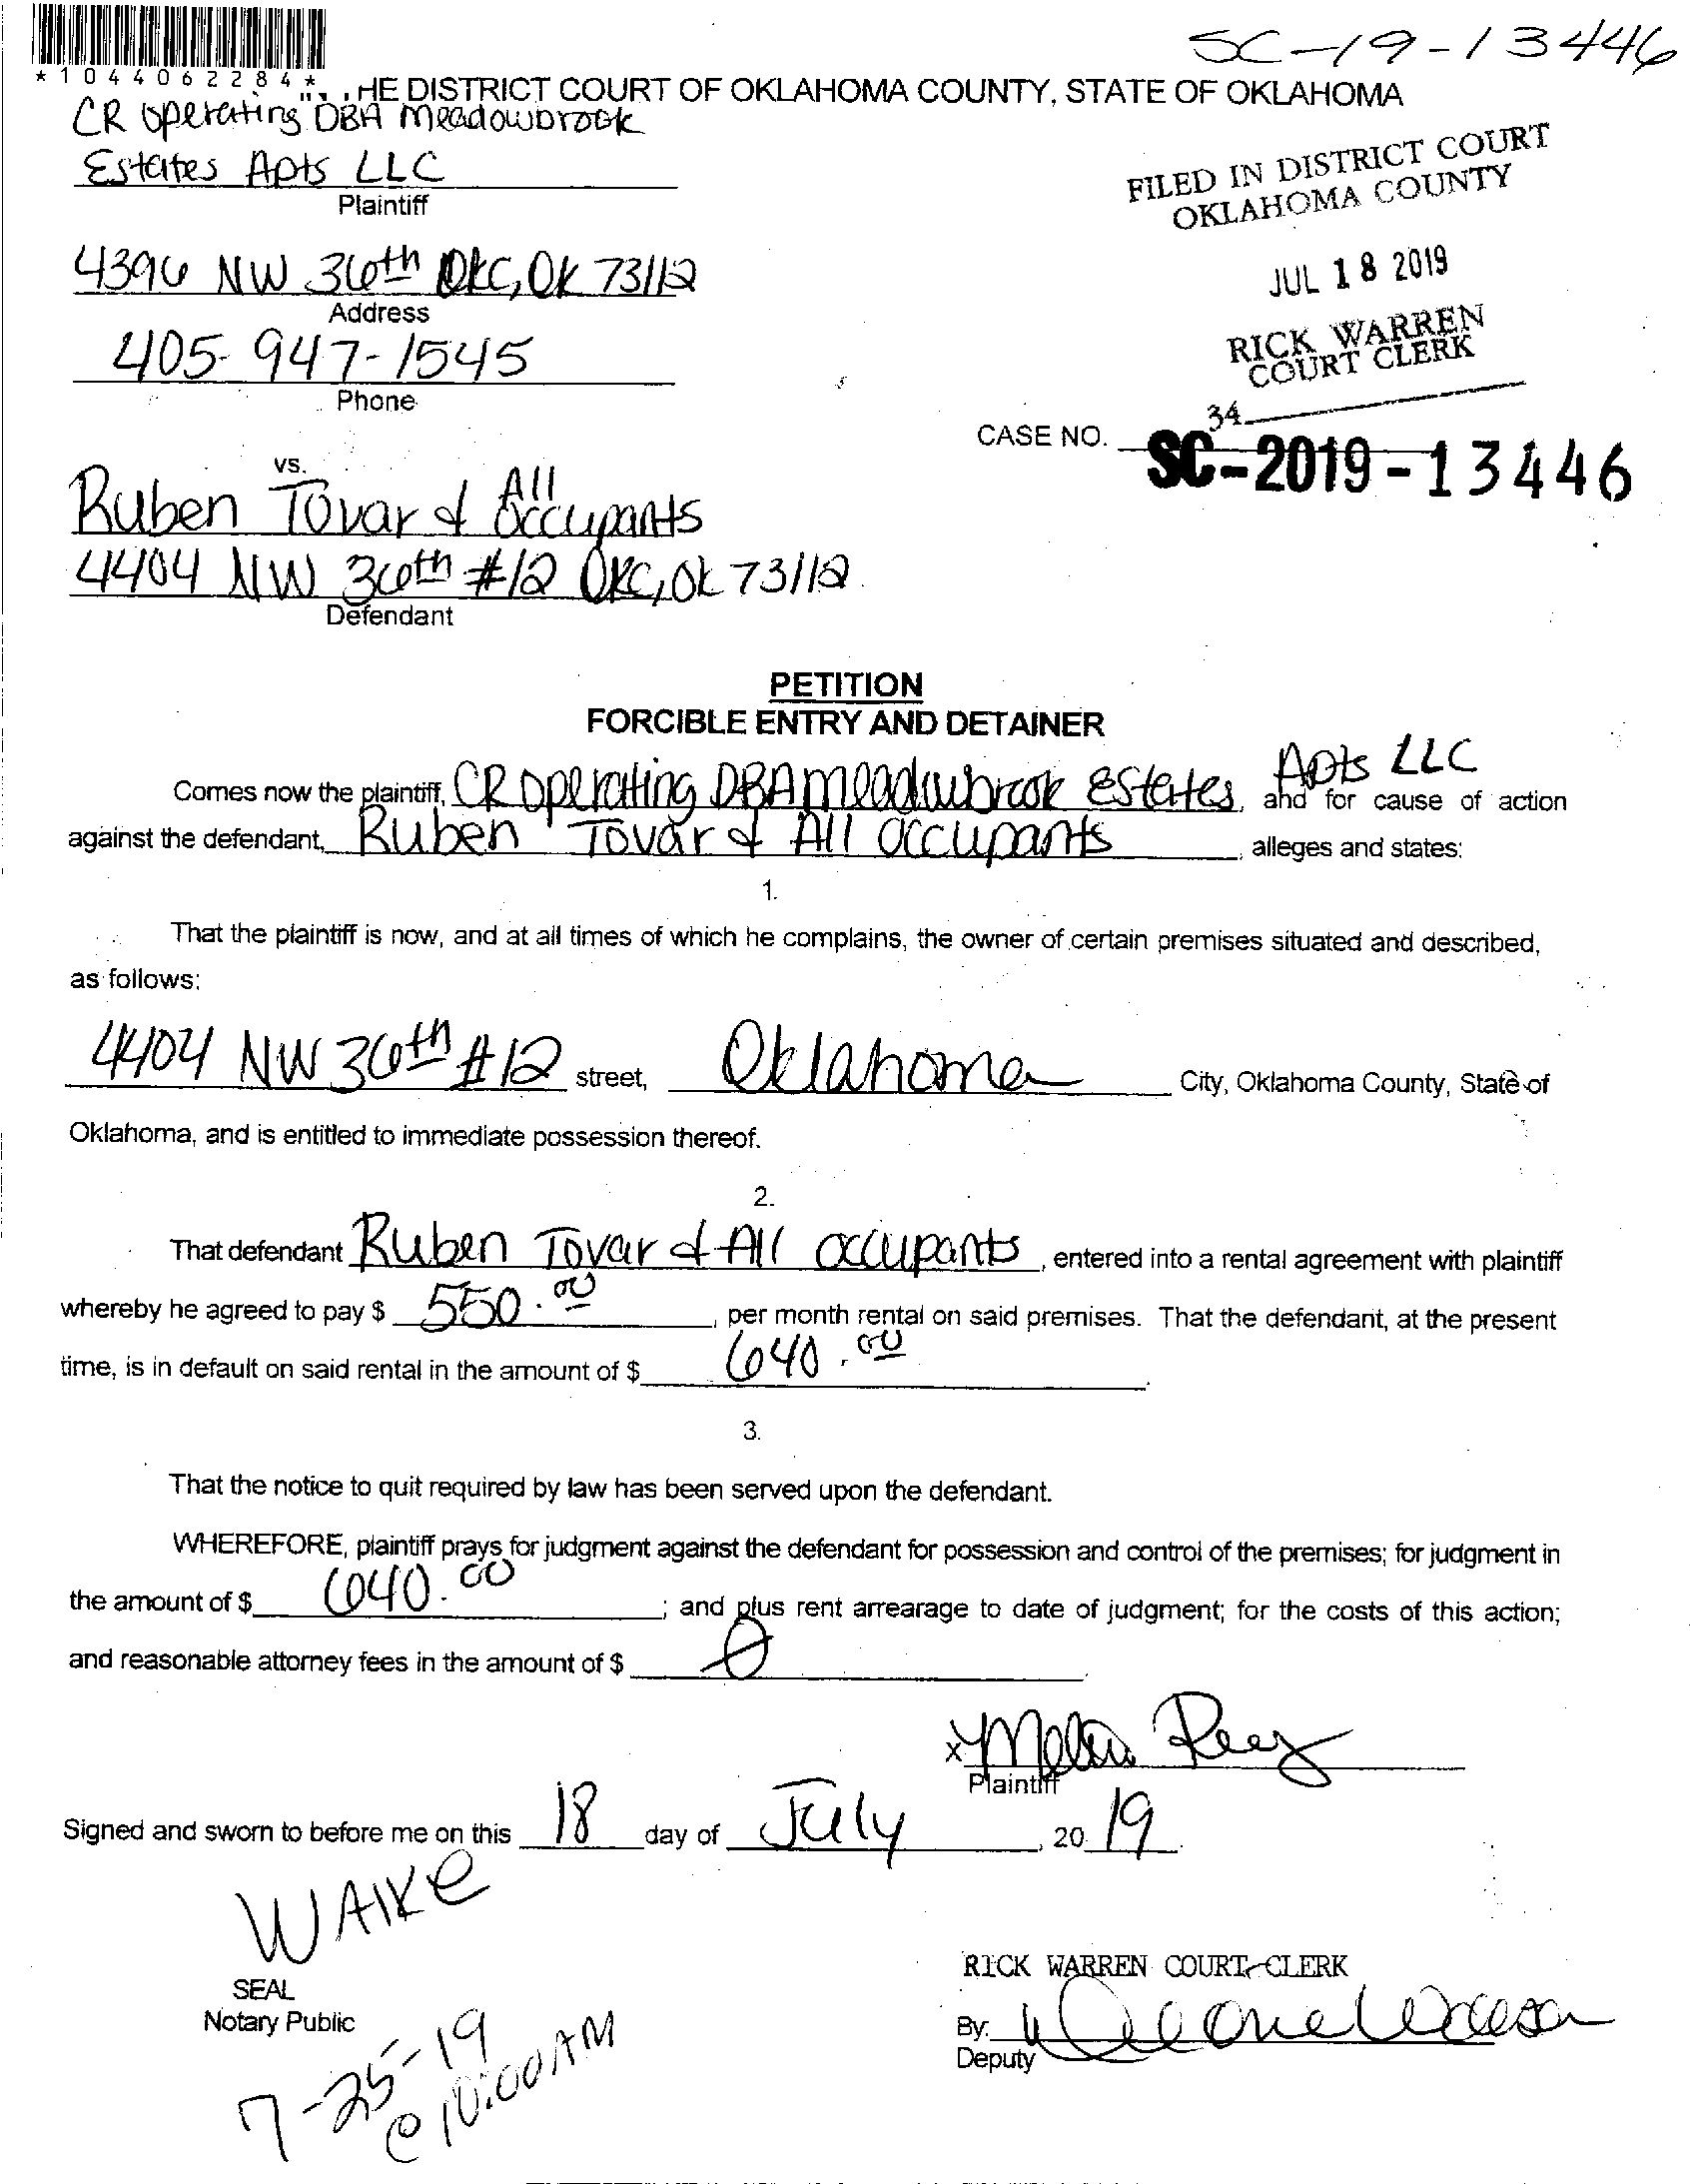 SC-19-13446
*1044062284*
HE DISTRICT COURT OF OKLAHOMA COUNTY, STATE OF OKLAHOMA
CR Operating DBA Meadowbrook
Estates Apts LLC
Plaintiff
FILED IN DISTRICT COURT
OKLAHOMA COUNTY
4396 NW 36th OKC, OK 73112
Address
JUL 18 2019
405-947-1545
Phone
RICK WARREN
COURT CLERK
34
CASE NO. SC-2019-13446
vs.
Ruben Tovar & All Occupants
4404 NW 36th #12 OKC, OK 73112
Defendant
PETITION
FORCIBLE ENTRY AND DETAINER
Comes now the plaintiff, CR Operating DBA Meadowbrook Estates Apts LLC, and for cause of action
against the defendant, Ruben Tovar & All Occupants, alleges and states:
1.
That the plaintiff is now, and at all times of which he complains, the owner of certain premises situated and described,
as follows:
4404 NW 36th #12 street, Oklahoma City, Oklahoma County, State of
Oklahoma, and is entitled to immediate possession thereof.
2.
That defendant Ruben Tovar & All occupants, entered into a rental agreement with plaintiff
whereby he agreed to pay $ 550.00, per month rental on said premises. That the defendant, at the present
time, is in default on said rental in the amount of $ 640.00.
3.
That the notice to quit required by law has been served upon the defendant.
WHEREFORE, plaintiff prays for judgment against the defendant for possession and control of the premises; for judgment in
the amount of $ 640.00; and plus rent arrearage to date of judgment; for the costs of this action;
and reasonable attorney fees in the amount of $ 0.
x
Plaintiff
Signed and sworn to before me on this 18 day of July, 2019.
WAIKE
RICK WARREN COURT CLERK
SEAL
Notary Public
By:
Deputy
7-25-19
@ 10:00 AM